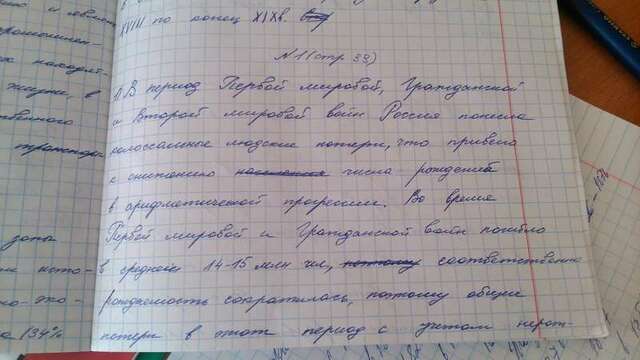 XVIII по конец XIXв.
N1 (стр 33)
1. В период Первой мировой, Гражданской
и Второй мировой войн Россия понесла
колоссальные людские потери, что привело
к снижению числа рождений
в арифметической прогрессии. Во время
Первой мировой и Гражданской войн погибло
в среднем 14-15 млн чел, поэтому соответственно
рождаемость сократилась, поэтому общие
потери в этот период с учетом нерож-
находят-
жизни, в
-ственного
транспорт
зоны
а 134%